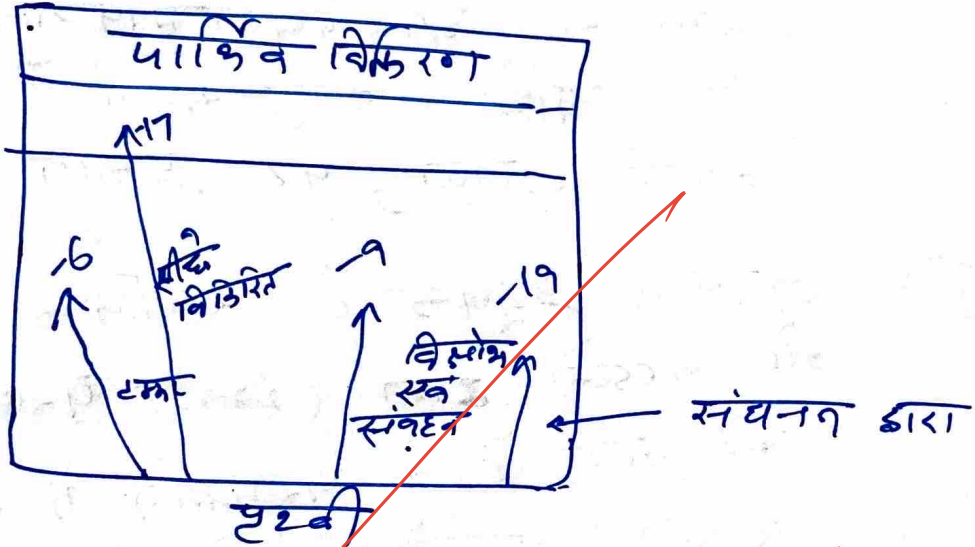 पार्थिव विकिरण
-17
-6
सीधे
विकिरित
-9
-19
विक्षोभ
एवं
संवहन
संघनन द्वारा
पृथ्वी